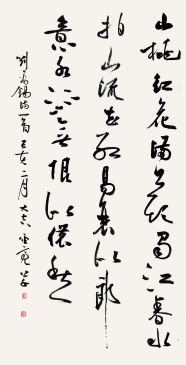 山桃红花满上头蜀江春水
拍山流花红易衰似郎
意水流无限似侬愁
刘禹锡诗一首 己亥二月